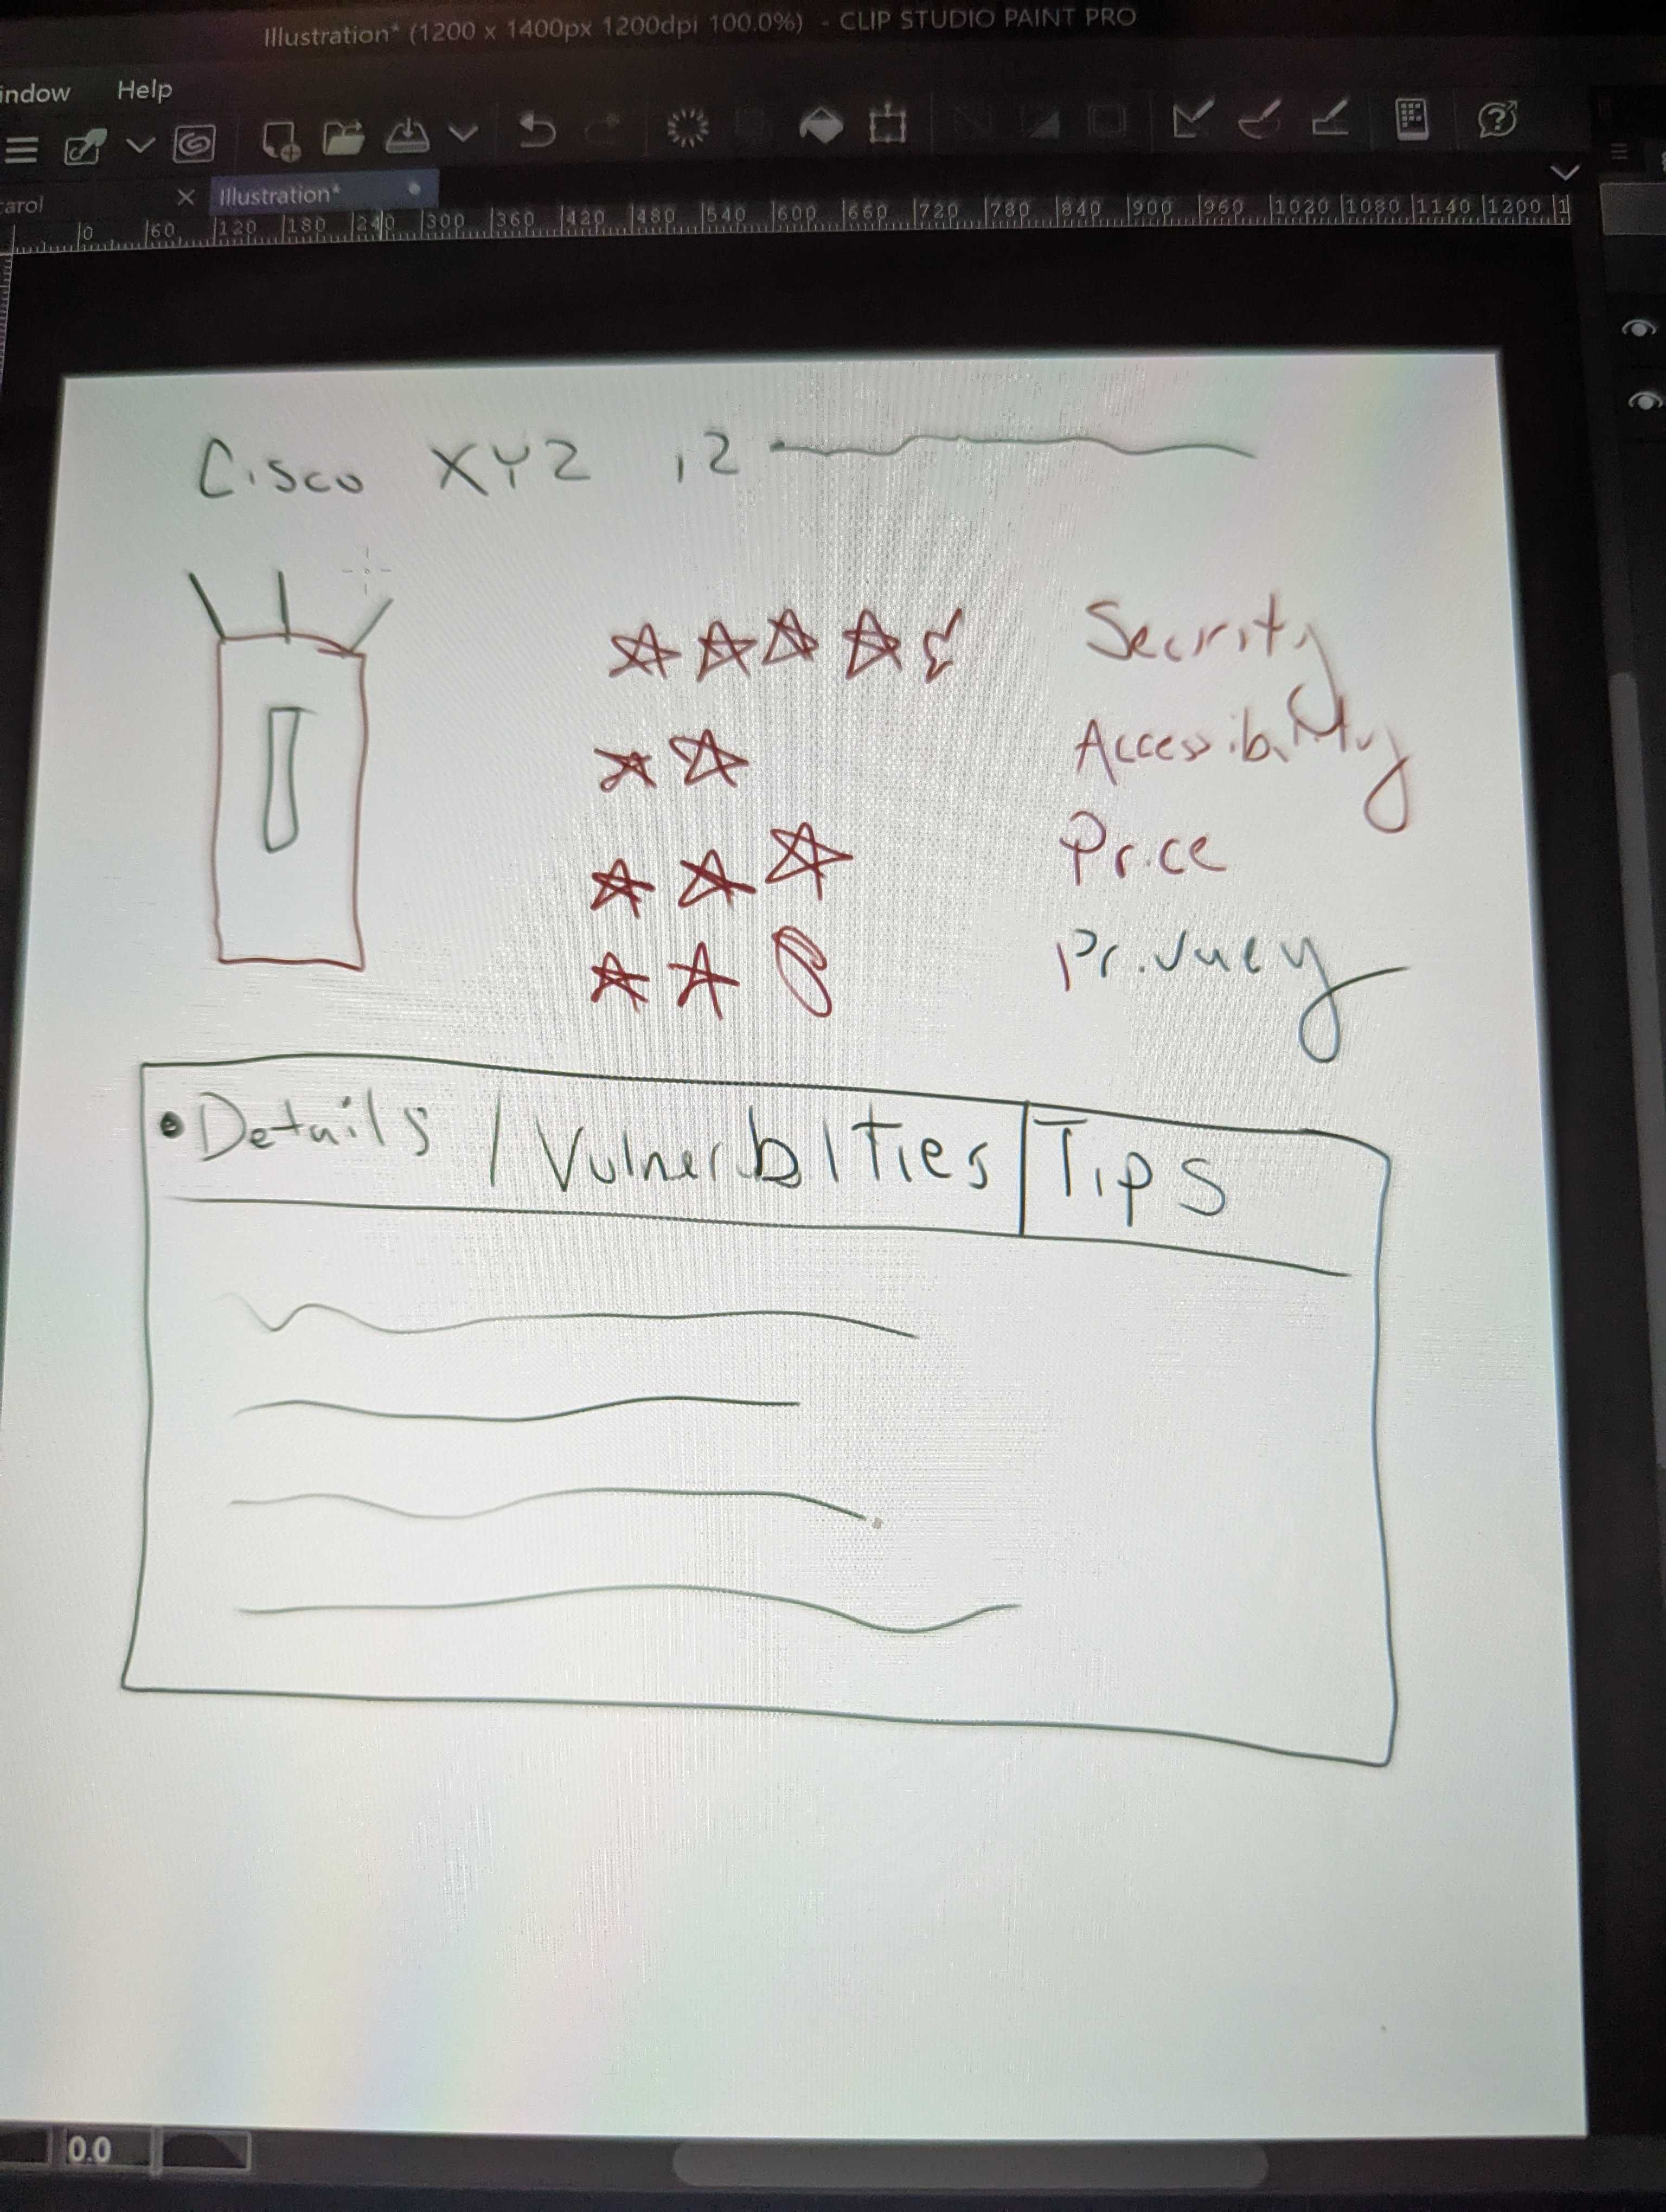 Illustration* (1200 x 1400px 1200dpi 100.0%) - CLIP STUDIO PAINT PRO
indow Help
arol Illustration*
0 60 120 180 240 300 360 420 480 540 600 660 720 780 840 900 960 1020 1080 1140 1200 1
Cisco XYZ 12
Security
Accessibility
Price
Privacy
• Details / Vulnerblties | Tips
0.0